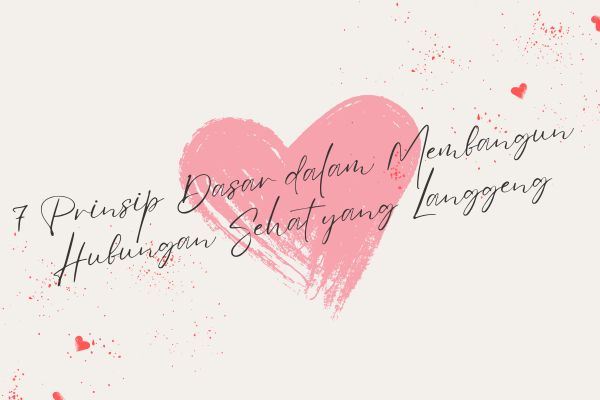 7 Prinsip Dasar dalam Membangun
Hubungan Sehat yang Langgeng